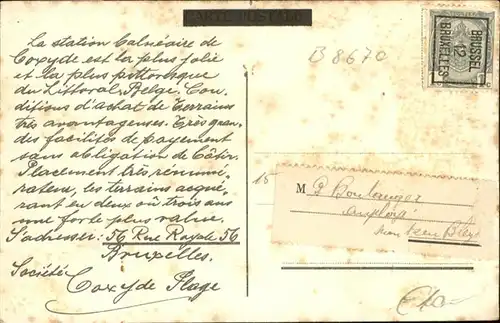 CARTE POSTALE
La station balnéaire de
Coxyde est la plus jolie
et la plus pittoresque
du Littoral Belge. Con-
ditions d'achat de terrains
très avantageuses. Très gran-
des facilités de payement
sans obligation de bâtir.
Placement très rémuné-
rateur, les terrains acqué-
rant en deux où trois ans
une forte plus value.
S'adresser: 56 Rue Royale 56
Bruxelles.
Société
Coxyde Plage
B 8670
BRUSSEL
12
BRUXELLES
15
M Boulanger